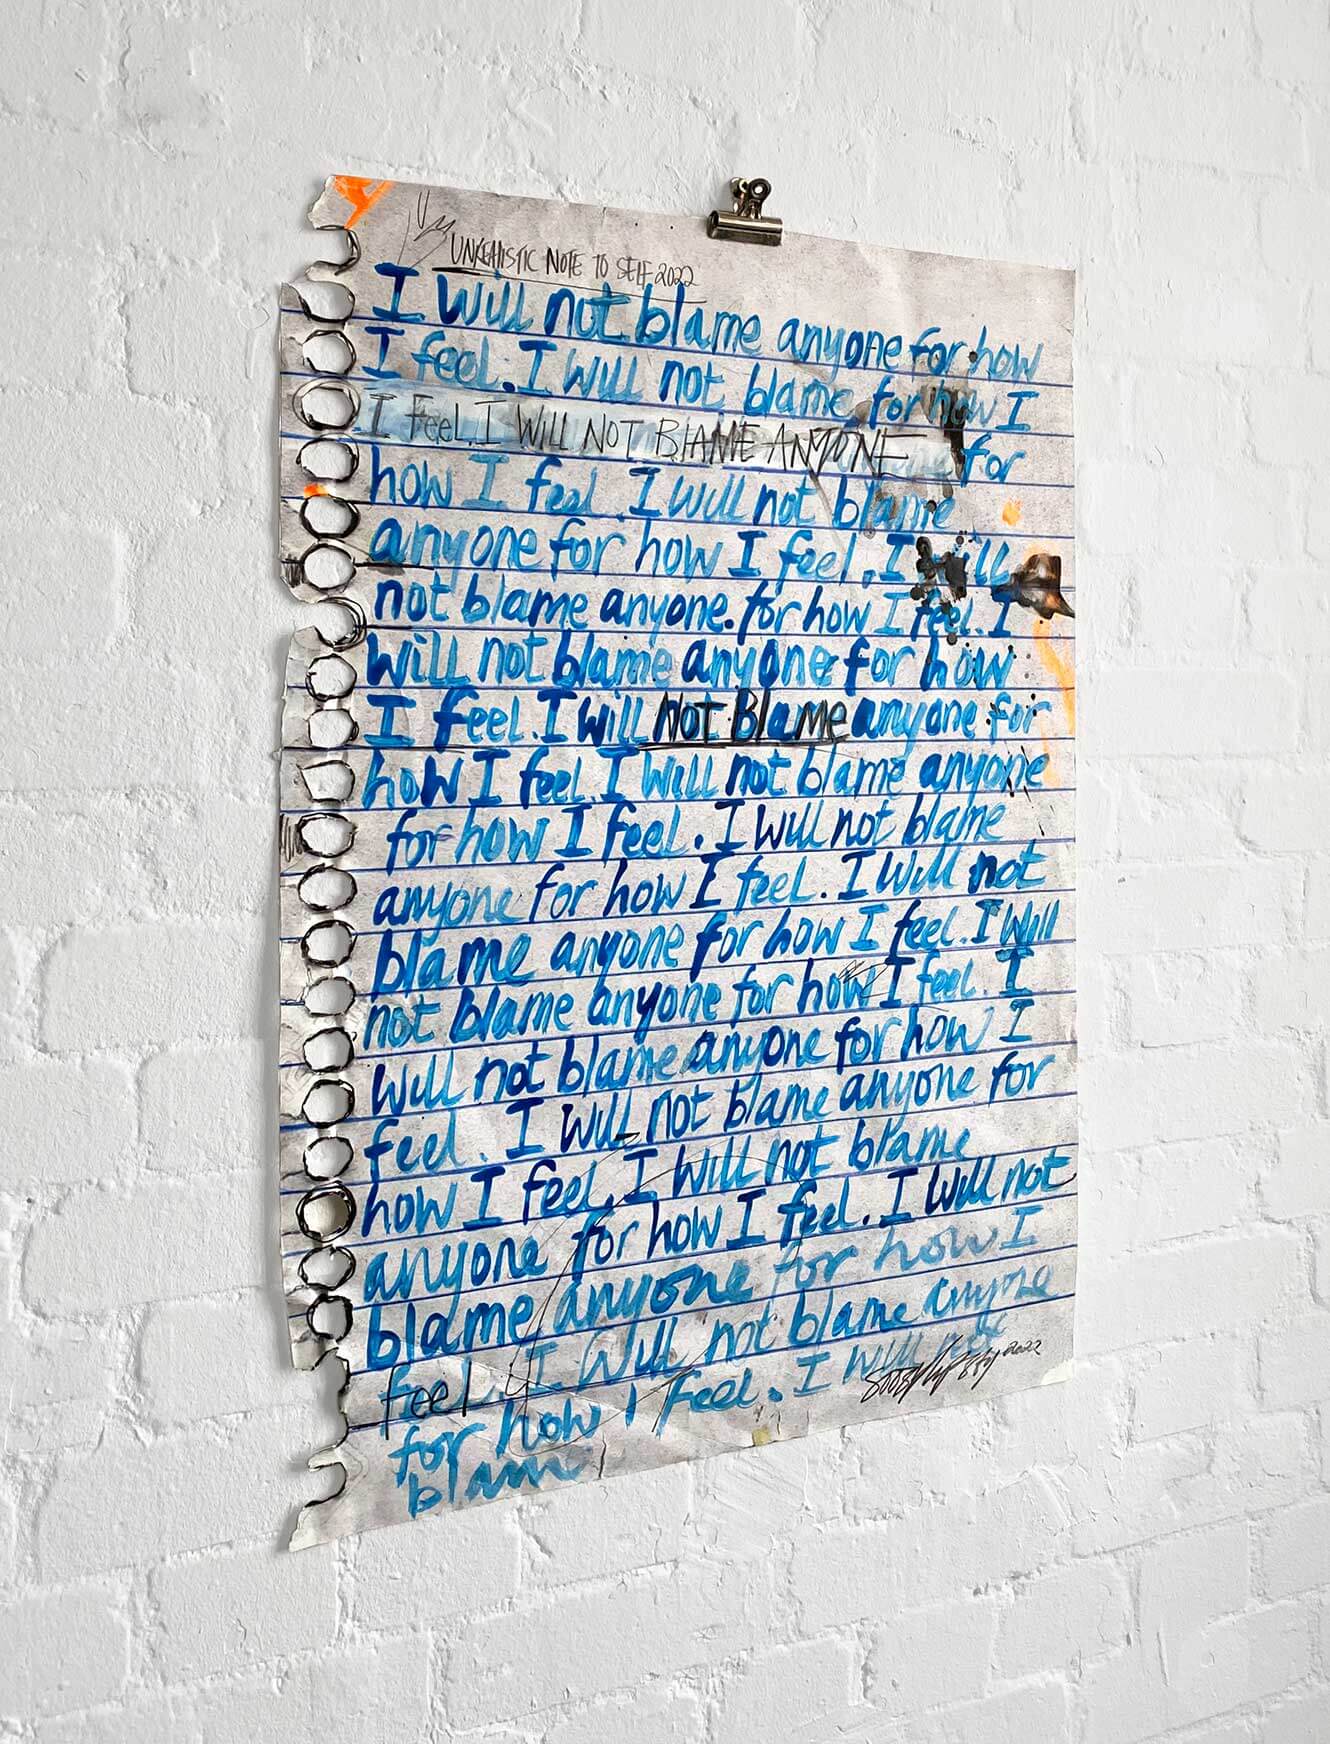 UNREALISTIC NOTE TO SELF 2022
I will not blame anyone for how
I feel. I will not blame for how I
I FEEL. I WILL NOT BLAME ANYONE for
how I feel. I will not blame
anyone for how I feel. I will
not blame anyone. for how I feel. I
will not blame anyone for how
I feel. I will NOT Blame anyone for
how I feel. I will not blame anyone
for how I feel. I will not blame
anyone for how I feel. I will not
blame anyone for how I feel. I will
not blame anyone for how I feel. I
will not blame anyone for how I
feel. I will not blame anyone for
how I feel. I will not blame
anyone for how I feel. I will not
blame anyone for how I
feel. I will not blame anyone
for how I feel. I will not
blame
2022